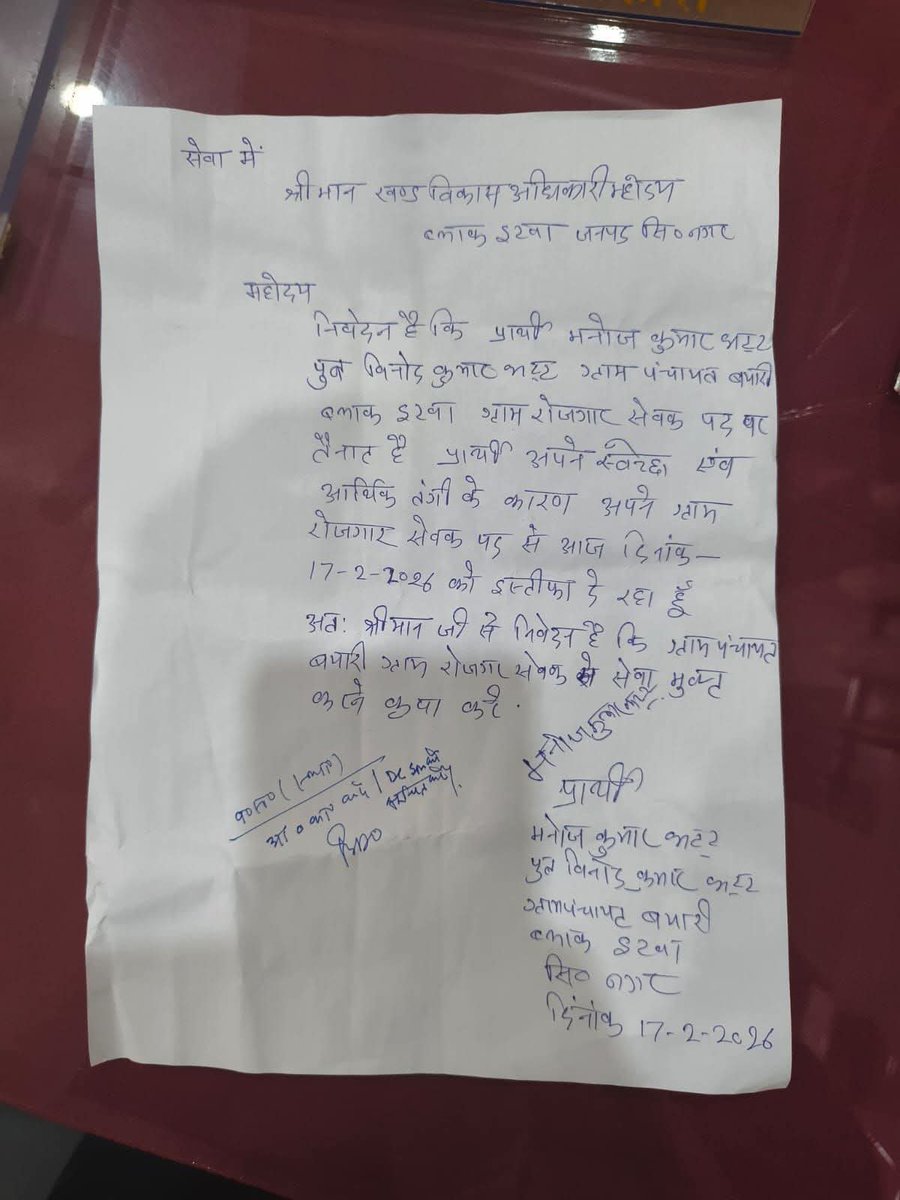 सेवा में
श्रीमान खण्ड विकास अधिकारी महोदय
ब्लाक इटवा जनपद सि० नगर
महोदय
निवेदन है कि प्रार्थी मनोज कुमार भट्ट
पुत्र विनोद कुमार भट्ट ग्राम पंचायत बयारी
ब्लाक इटवा ग्राम रोजगार सेवक पद पर
तैनात है प्रार्थी अपने स्वेच्छा एंव
आर्थिक तंगी के कारण अपने ग्राम
रोजगार सेवक पद से आज दिनांक–
17-2-2026 को इस्तीफा दे रहा हूँ
अतः श्रीमान जी से निवेदन है कि ग्राम पंचायत
बयारी ग्राम रोजगार सेवक से सेवा मुक्त
करने कृपा करे.
मनोज कुमार
प्रार्थी
मनोज कुमार भट्ट
पुत्र विनोद कुमार भट्ट
ग्राम पंचायत बयारी
ब्लाक इटवा
सि० नगर
दिंनांक 17-2-2026